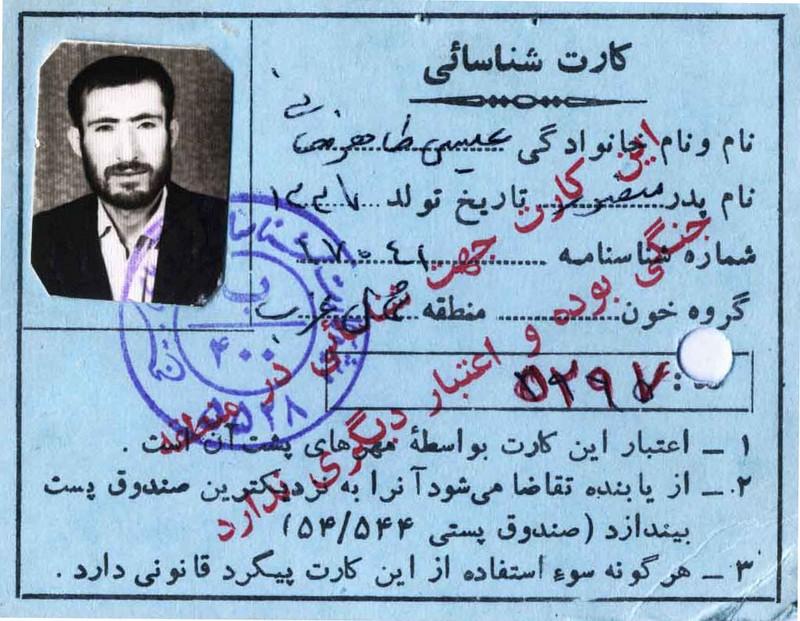 کارت شناسائی
نام ونام خانوادگی عیسی طاهرخانی
نام پدر منصور تاریخ تولد ۱۳۳۷
شماره شناسنامه
گروه خون منطقه شمال غرب
۵۲۹۷
۱ ــ اعتبار این کارت بواسطهٔ مهرهای پشت آن است .
۲ ــ از یابنده تقاضا می‌شود آنرا به نزدیکترین صندوق پست
بیندازد (صندوق پستی ۵۴/۵۴۴)
۳ ــ هرگونه سوء استفاده از این کارت پیگرد قانونی دارد .
این کارت جهت شناسائی در منطقه
جنگی بوده و اعتبار دیگری ندارد
ب
۴۰۰
۵۲۸